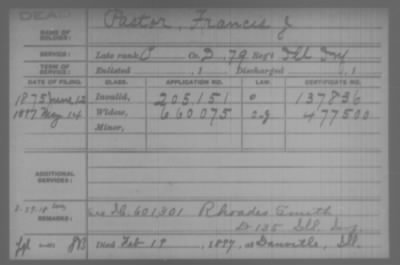 DEAD
NAME OF SOLDIER: Pastor, Francis J
SERVICE: Late rank P Co. D, 79 Reg't Ill Inf
TERM OF SERVICE: Enlisted , 1 Discharged , 1
DATE OF FILING. CLASS. APPLICATION NO. LAW. CERTIFICATE NO.
1875 June 12 Invalid, 205,151 137836
1897 May 14 Widow, 660075 477500
Minor,
ADDITIONAL SERVICES:
REMARKS: 601301 Rhoades Smith
D 135 Ill. Inf
Died Feb 19, 1897, at Danville, Ill.